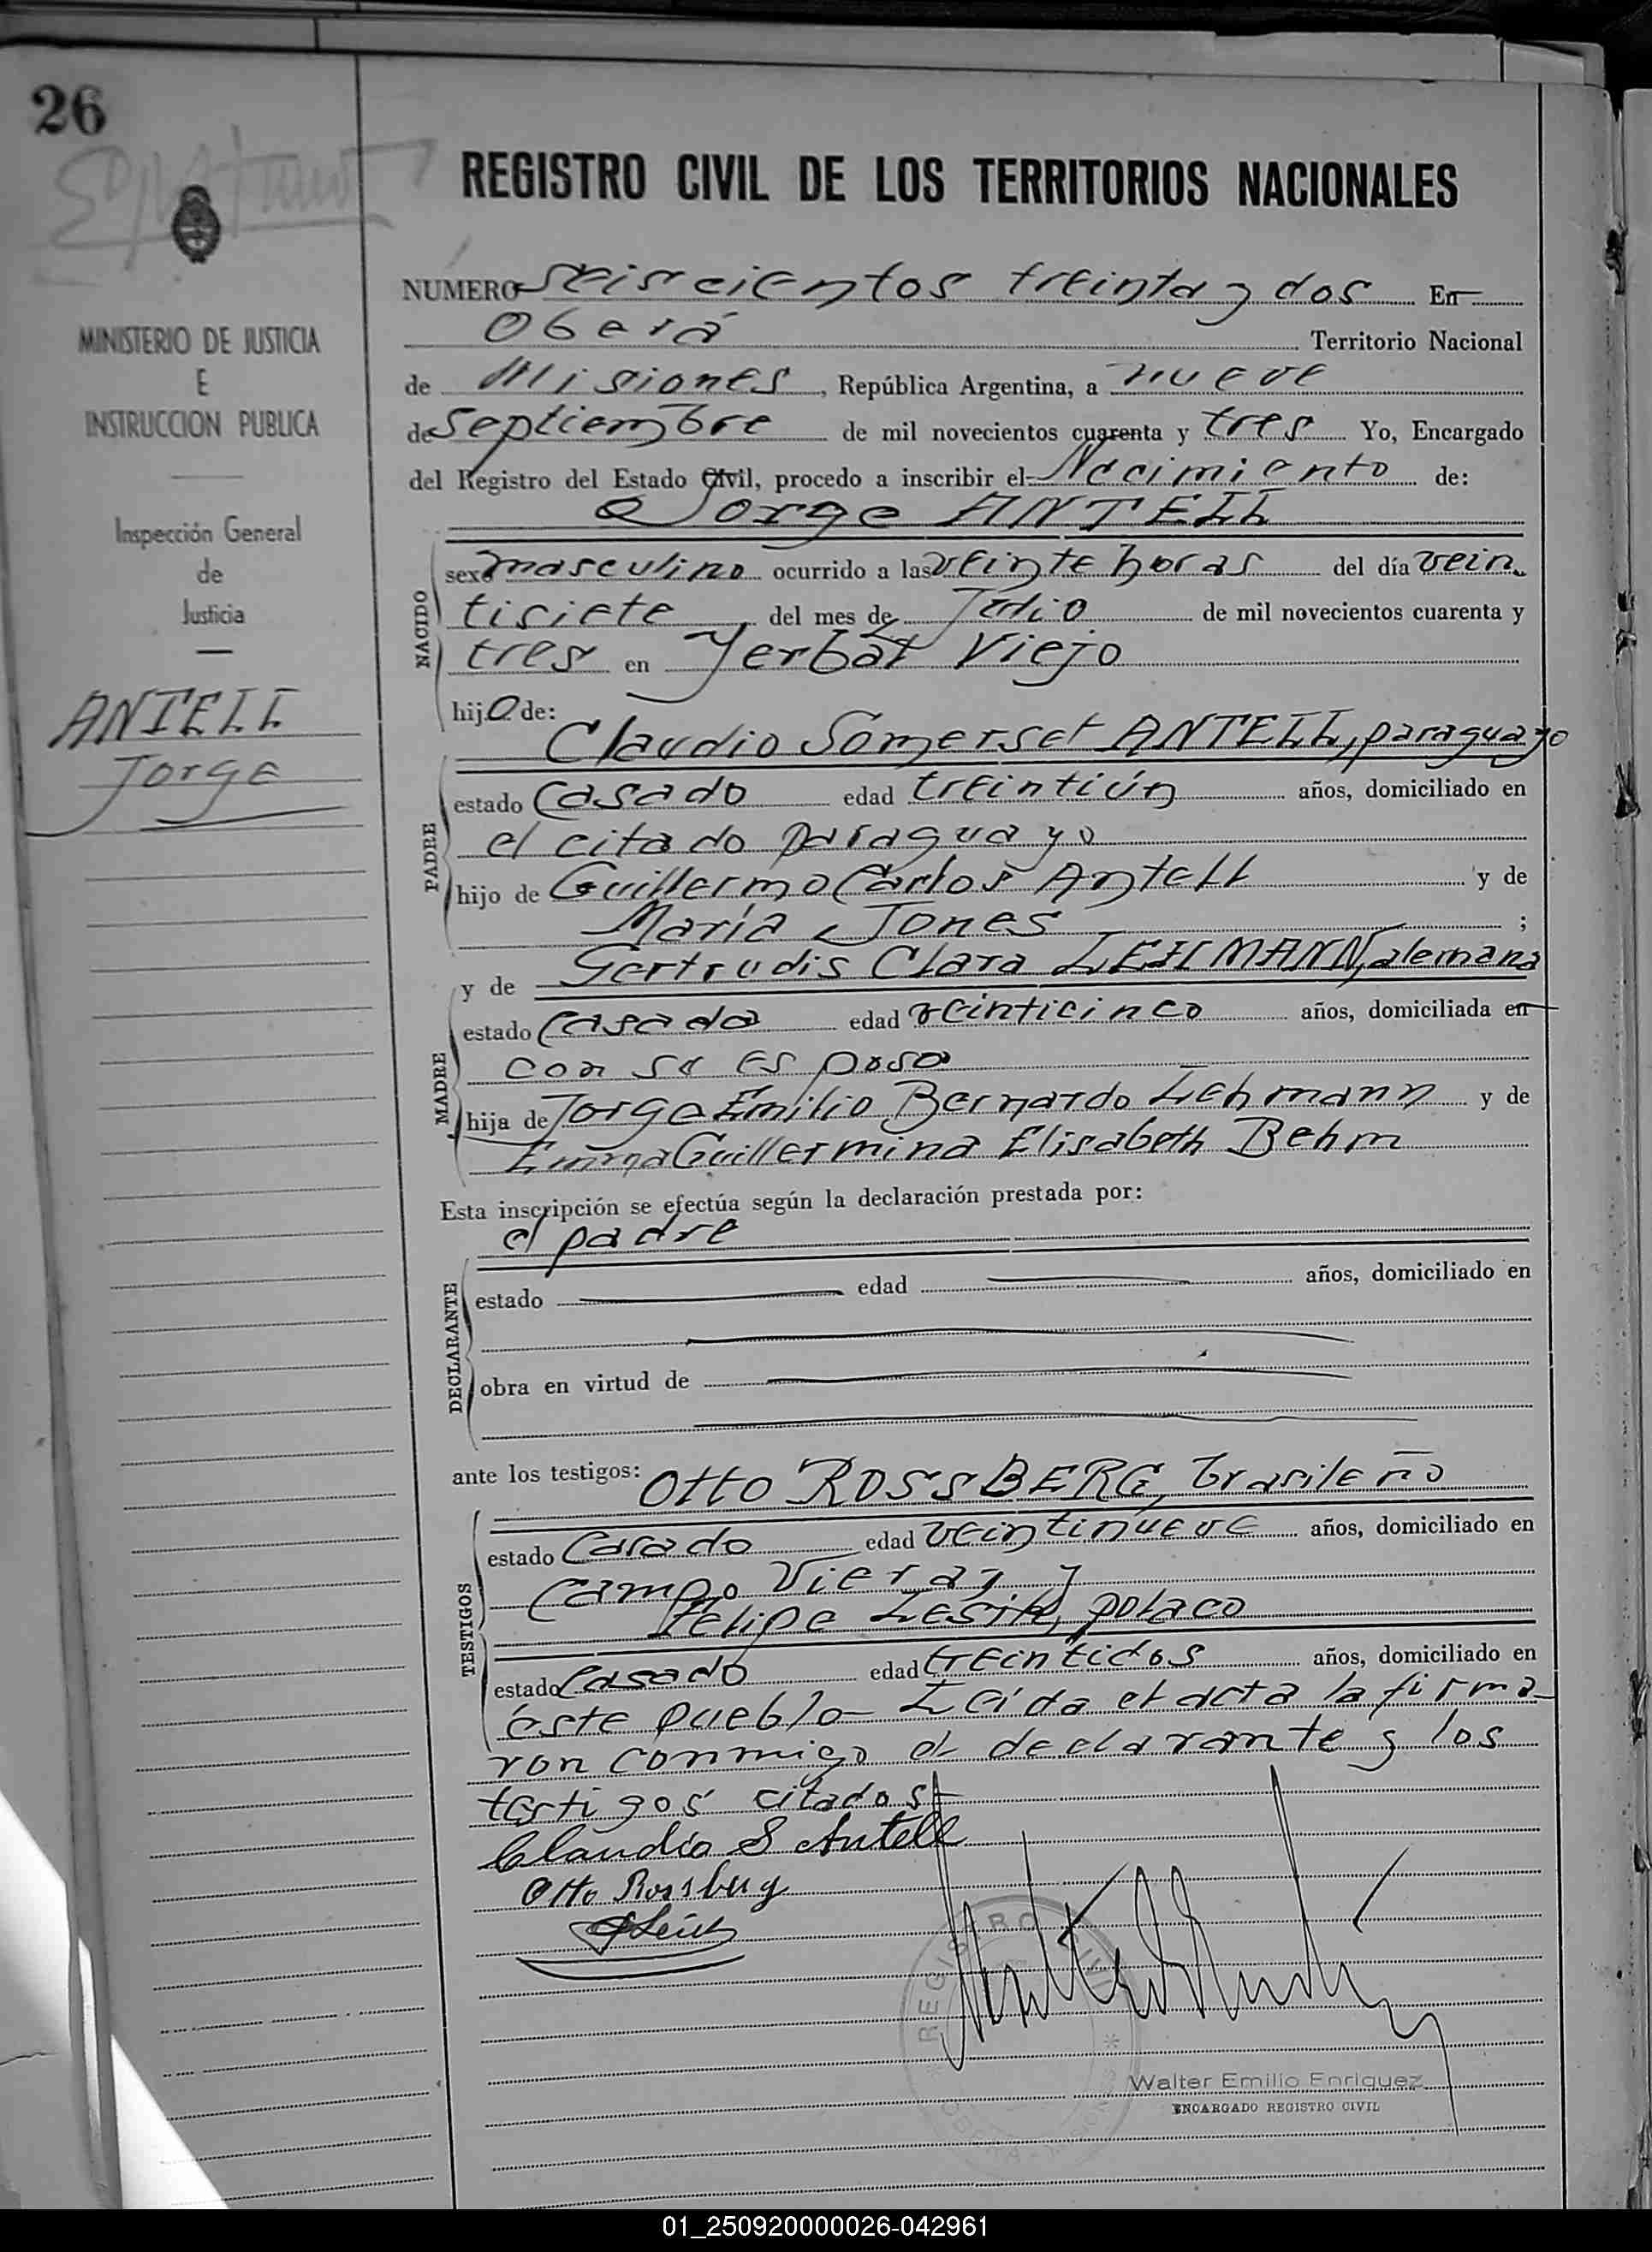 26
REGISTRO CIVIL DE LOS TERRITORIOS NACIONALES
MINISTERIO DE JUSTICIA
E
INSTRUCCION PUBLICA
Inspección General
de
Justicia
ANTELL
Jorge
NUMERO Seiscientos treinta y dos En
Oberá Territorio Nacional
de Misiones, República Argentina, a nueve
de Septiembre de mil novecientos cuarenta y tres Yo, Encargado
del Registro del Estado Civil, procedo a inscribir el Nacimiento de:
Jorge ANTELL
NACIDO
sexo masculino ocurrido a las veinte horas del día vein
tisiete del mes de Julio de mil novecientos cuarenta y
tres en Yerbal Viejo
hijo de:
Claudio Somerset ANTELL, paraguayo
PADRE
estado Casado edad treintiún años, domiciliado en
el citado paraguayo
hijo de Guillermo Carlos Antell y de
María Jones ;
y de Gertrudis Clara LEHMANN, alemana
MADRE
estado Casada edad veinticinco años, domiciliada en
con su esposo
hija de Jorge Emilio Bernardo Lehmann y de
Emma Guillermina Elisabeth Behm
Esta inscripción se efectúa según la declaración prestada por:
el padre
DECLARANTE
estado edad años, domiciliado en
obra en virtud de
ante los testigos: Otto ROSSBERG, brasileño
TESTIGOS
estado Casado edad veintinueve años, domiciliado en
Campo Viera, y
Felipe polaco
estado Casado edad treintidos años, domiciliado en
éste pueblo- Leída el acta la firma-
ron conmigo el declarante y los
testigos citados-
Claudio S Antell
Otto Rossberg
REGISTRO CIVIL
Walter Emilio Enriquez
ENCARGADO REGISTRO CIVIL
01_250920000026-042961